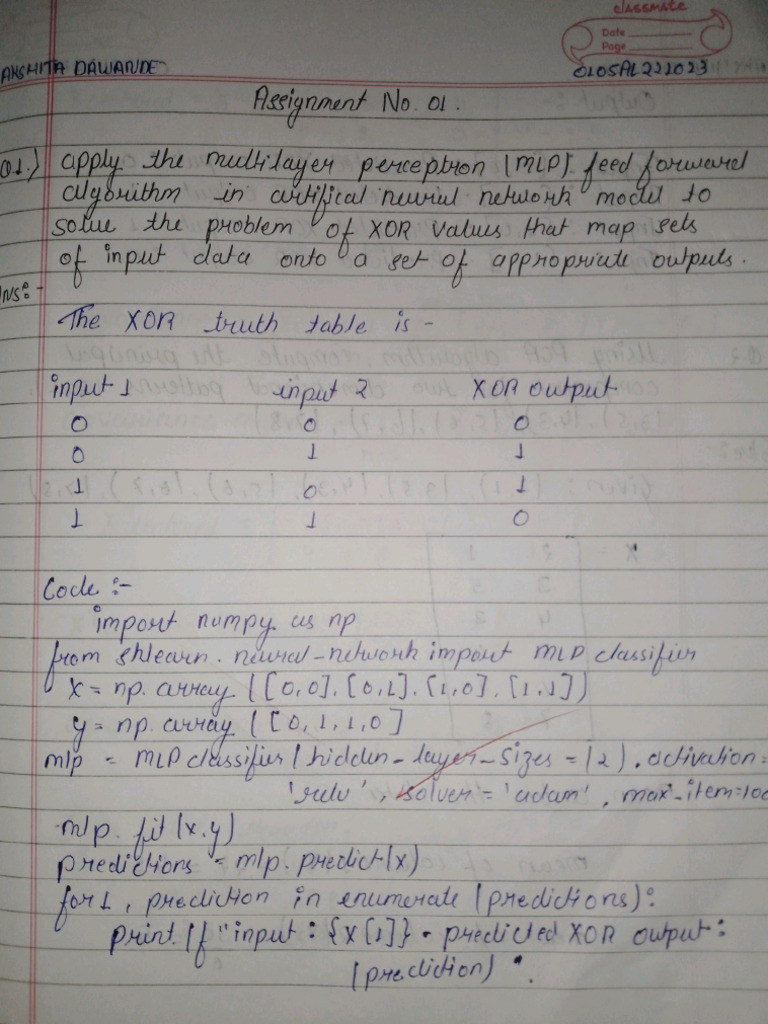 classmate
Date
Page
AKSHITA DAWANDE
0105AL221023
Assignment No. 01.
Q1.) apply the multilayer perceptron (MLP) feed forward
algorithm in artifical neural network model to
solve the problem of XOR values that map sets
of input data onto a set of appropriate outputs.
Ans:-
The XOR truth table is -
input 1 input 2 XOR output
0 0 0
0 1 1
1 0 1
1 1 0
Code :-
import numpy as np
from sklearn. neural-network import MLP classifier
X = np. array ([0,0], [0,1], [1,0], [1,1])
y = np. array ([0, 1, 1, 0]
mlp = MLP classifier (hidden-layer-sizes = (2), activation=
'relu', solver = 'adam', max-item=100
mlp. fit (x.y)
predictions = mlp. predict(x)
for 1, prediction in enumerate (predictions):
print (f "input : {X[1]} - predicted XOR output :
(prediction) ".